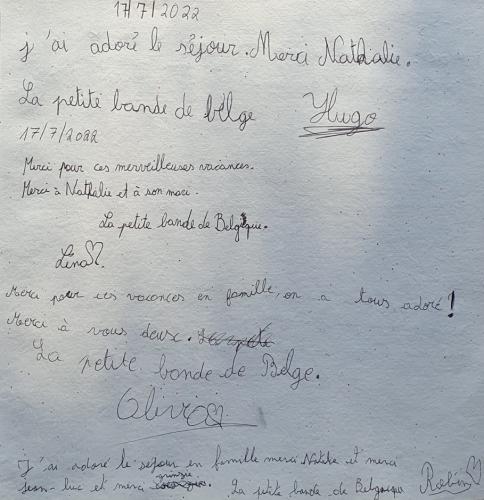 17/7/2022
j'ai adoré le séjour. Merci Nathalie.
La petite bande de bèlge Hugo
17/7/2022
Merci pour ces merveilleuses vacances.
Merci à Nathalie et à son mari.
La petite bande de Belgique.
Léna
Merci pour ces vacances en famille, on a tous adoré!
Merci à vous deux.
La petite bande de Belge.
Olivia
j'ai adoré le séjour en famille merci Natalie et merci
Jean-luc et merci La petite bande de Belgique Robin